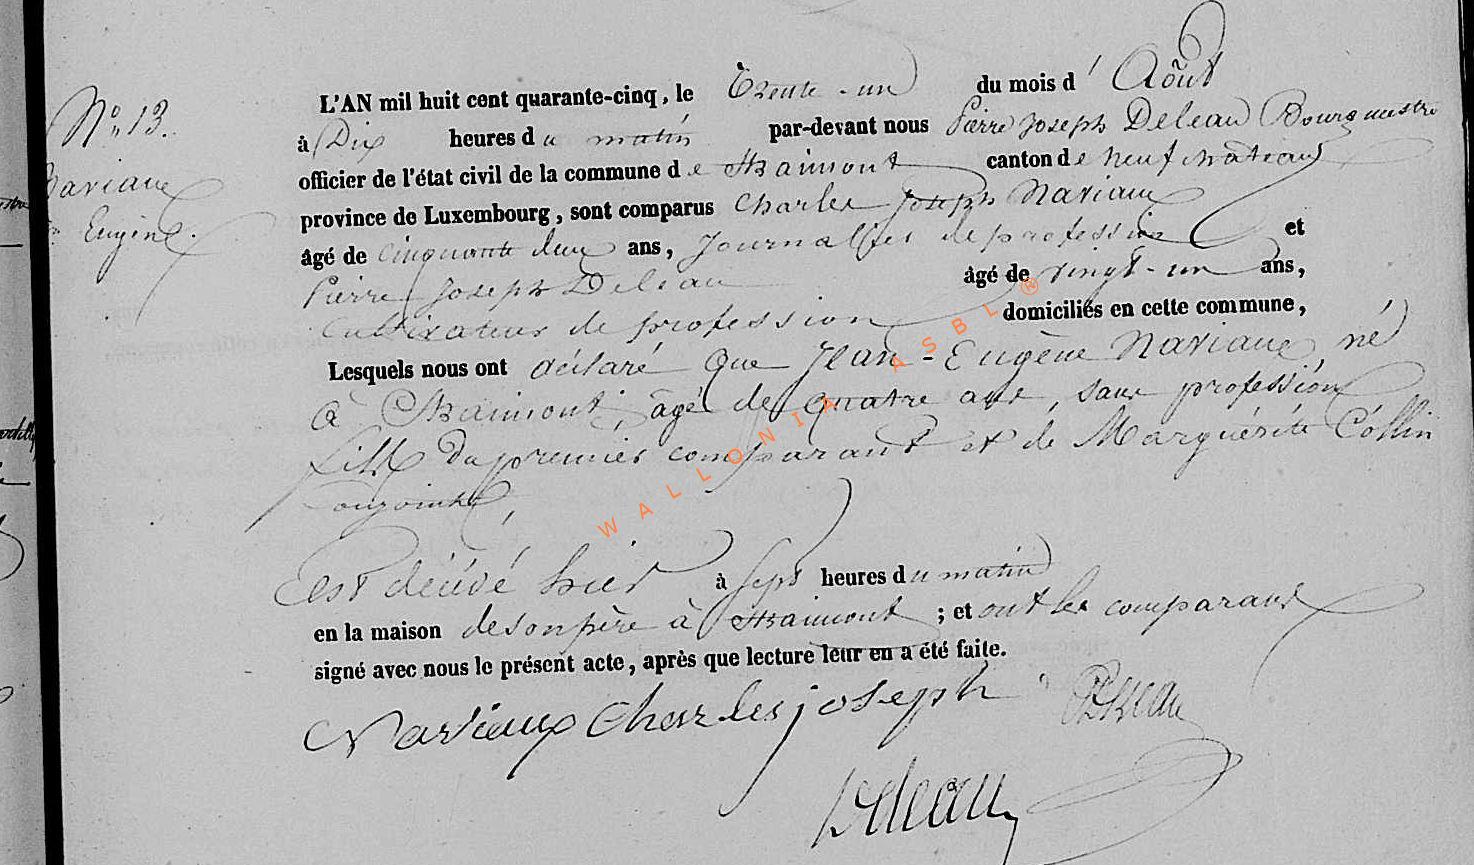 N° 13.
Naviaux
Eugène.
L'AN mil huit cent quarante-cinq, le Trente-un du mois d' Août
à Dix heures du matin par-devant nous Pierre Joseph Deleau Bourgmestre
officier de l'état civil de la commune de Straimont canton de neufchâteau
province de Luxembourg, sont comparus Charles Joseph Naviaux
âgé de cinquante deux ans, Journalier de profession et
Pierre Joseph Deleau âgé de vingt-un ans,
Cultivateur de profession domiciliés en cette commune,
Lesquels nous ont déclaré que Jean-Eugène Naviaux, né
à Straimont, âgé de quatre ans, sans profession
fils du premier comparant et de Marguérite Collin
conjointe,
est décédé hier à sept heures du matin
en la maison de son père à Straimont ; et ont les comparans
signé avec nous le présent acte, après que lecture leur en a été faite.
Naviaux Charles joseph PJDeleau
Deleau
WALLONIA ASBL ®